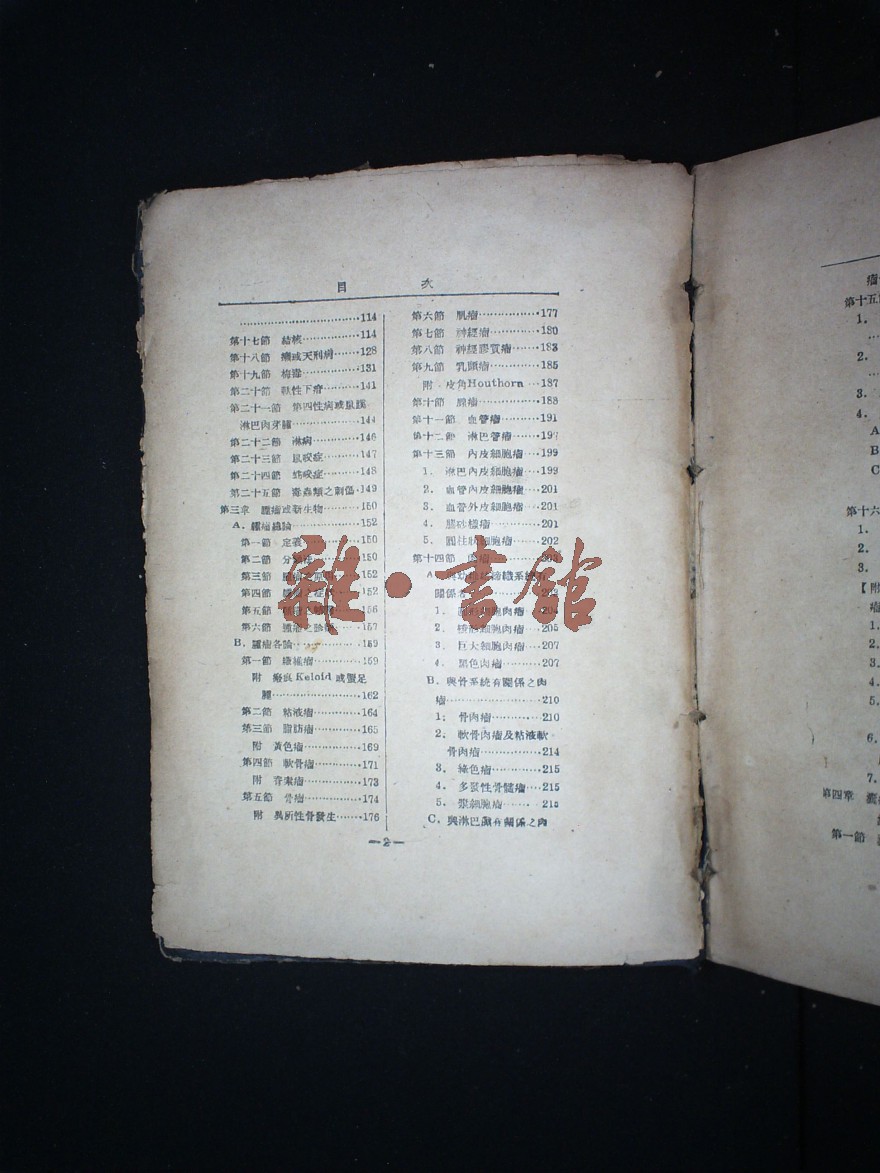 目 次
……………………………114
第十七節 結核……………114
第十八節 癩或天刑病……128
第十九節 梅毒……………131
第二十節 軟性下疳………141
第二十一節 第四性病或鼠蹊
淋巴肉芽腫………………144
第二十二節 淋病…………146
第二十三節 鼠咬症………147
第二十四節 咬症………148
第二十五節 毒蟲類之刺傷·149
第三章 腫瘤或新生物……150
A. 腫瘤總論………………152
第一節 定義………………150
第二節 分………………150
第三節 ………………152
第四節 ………………152
第五節 ………………156
第六節 腫瘤之診斷………157
B. 腫瘤各論………………159
第一節 纖維瘤……………159
附 瘢痕Keloid或蟹足
腫…………………………162
第二節 粘液瘤……………164
第三節 脂肪瘤……………165
附 黃色瘤…………………169
第四節 軟骨瘤……………171
附 脊索瘤…………………173
第五節 骨瘤………………174
附 異所性骨發生…………176
第六節 肌瘤………………177
第七節 神經瘤……………180
第八節 神經膠質瘤………183
第九節 乳頭瘤……………185
附 皮角Houthorn…187
第十節 腺瘤………………188
第十一節 血管瘤…………191
第十二節 淋巴管瘤………197
第十三節 內皮細胞瘤……199
1. 淋巴內皮細胞瘤………199
2. 血管內皮細胞瘤………201
3. 血管外皮細胞瘤………201
4. 腦砂樣瘤………………201
5. 圓柱狀細胞瘤…………202
第十四節 肉瘤……………203
A. 與幼織系統有
關係者……………………204
1. 細胞肉瘤…………204
2. 細胞肉瘤…………205
3. 巨大細胞肉瘤…………207
4. 黑色肉瘤………………207
B. 與骨系統有關係之肉
瘤…………………………210
1. 骨肉瘤…………………210
2. 軟骨肉瘤及粘液軟
骨肉瘤……………………214
3. 綠色瘤…………………215
4. 多發性骨髓瘤…………215
5. 漿細胞瘤………………216
C. 與淋巴有關係之肉
—2—
雜·書館
瘤
第十五
1.
2.
3.
4.
A
B
C
第十六
1.
2.
3.
【附
瘤
1.
2.
3.
4.
5.
6.
7.
第四章
第一節